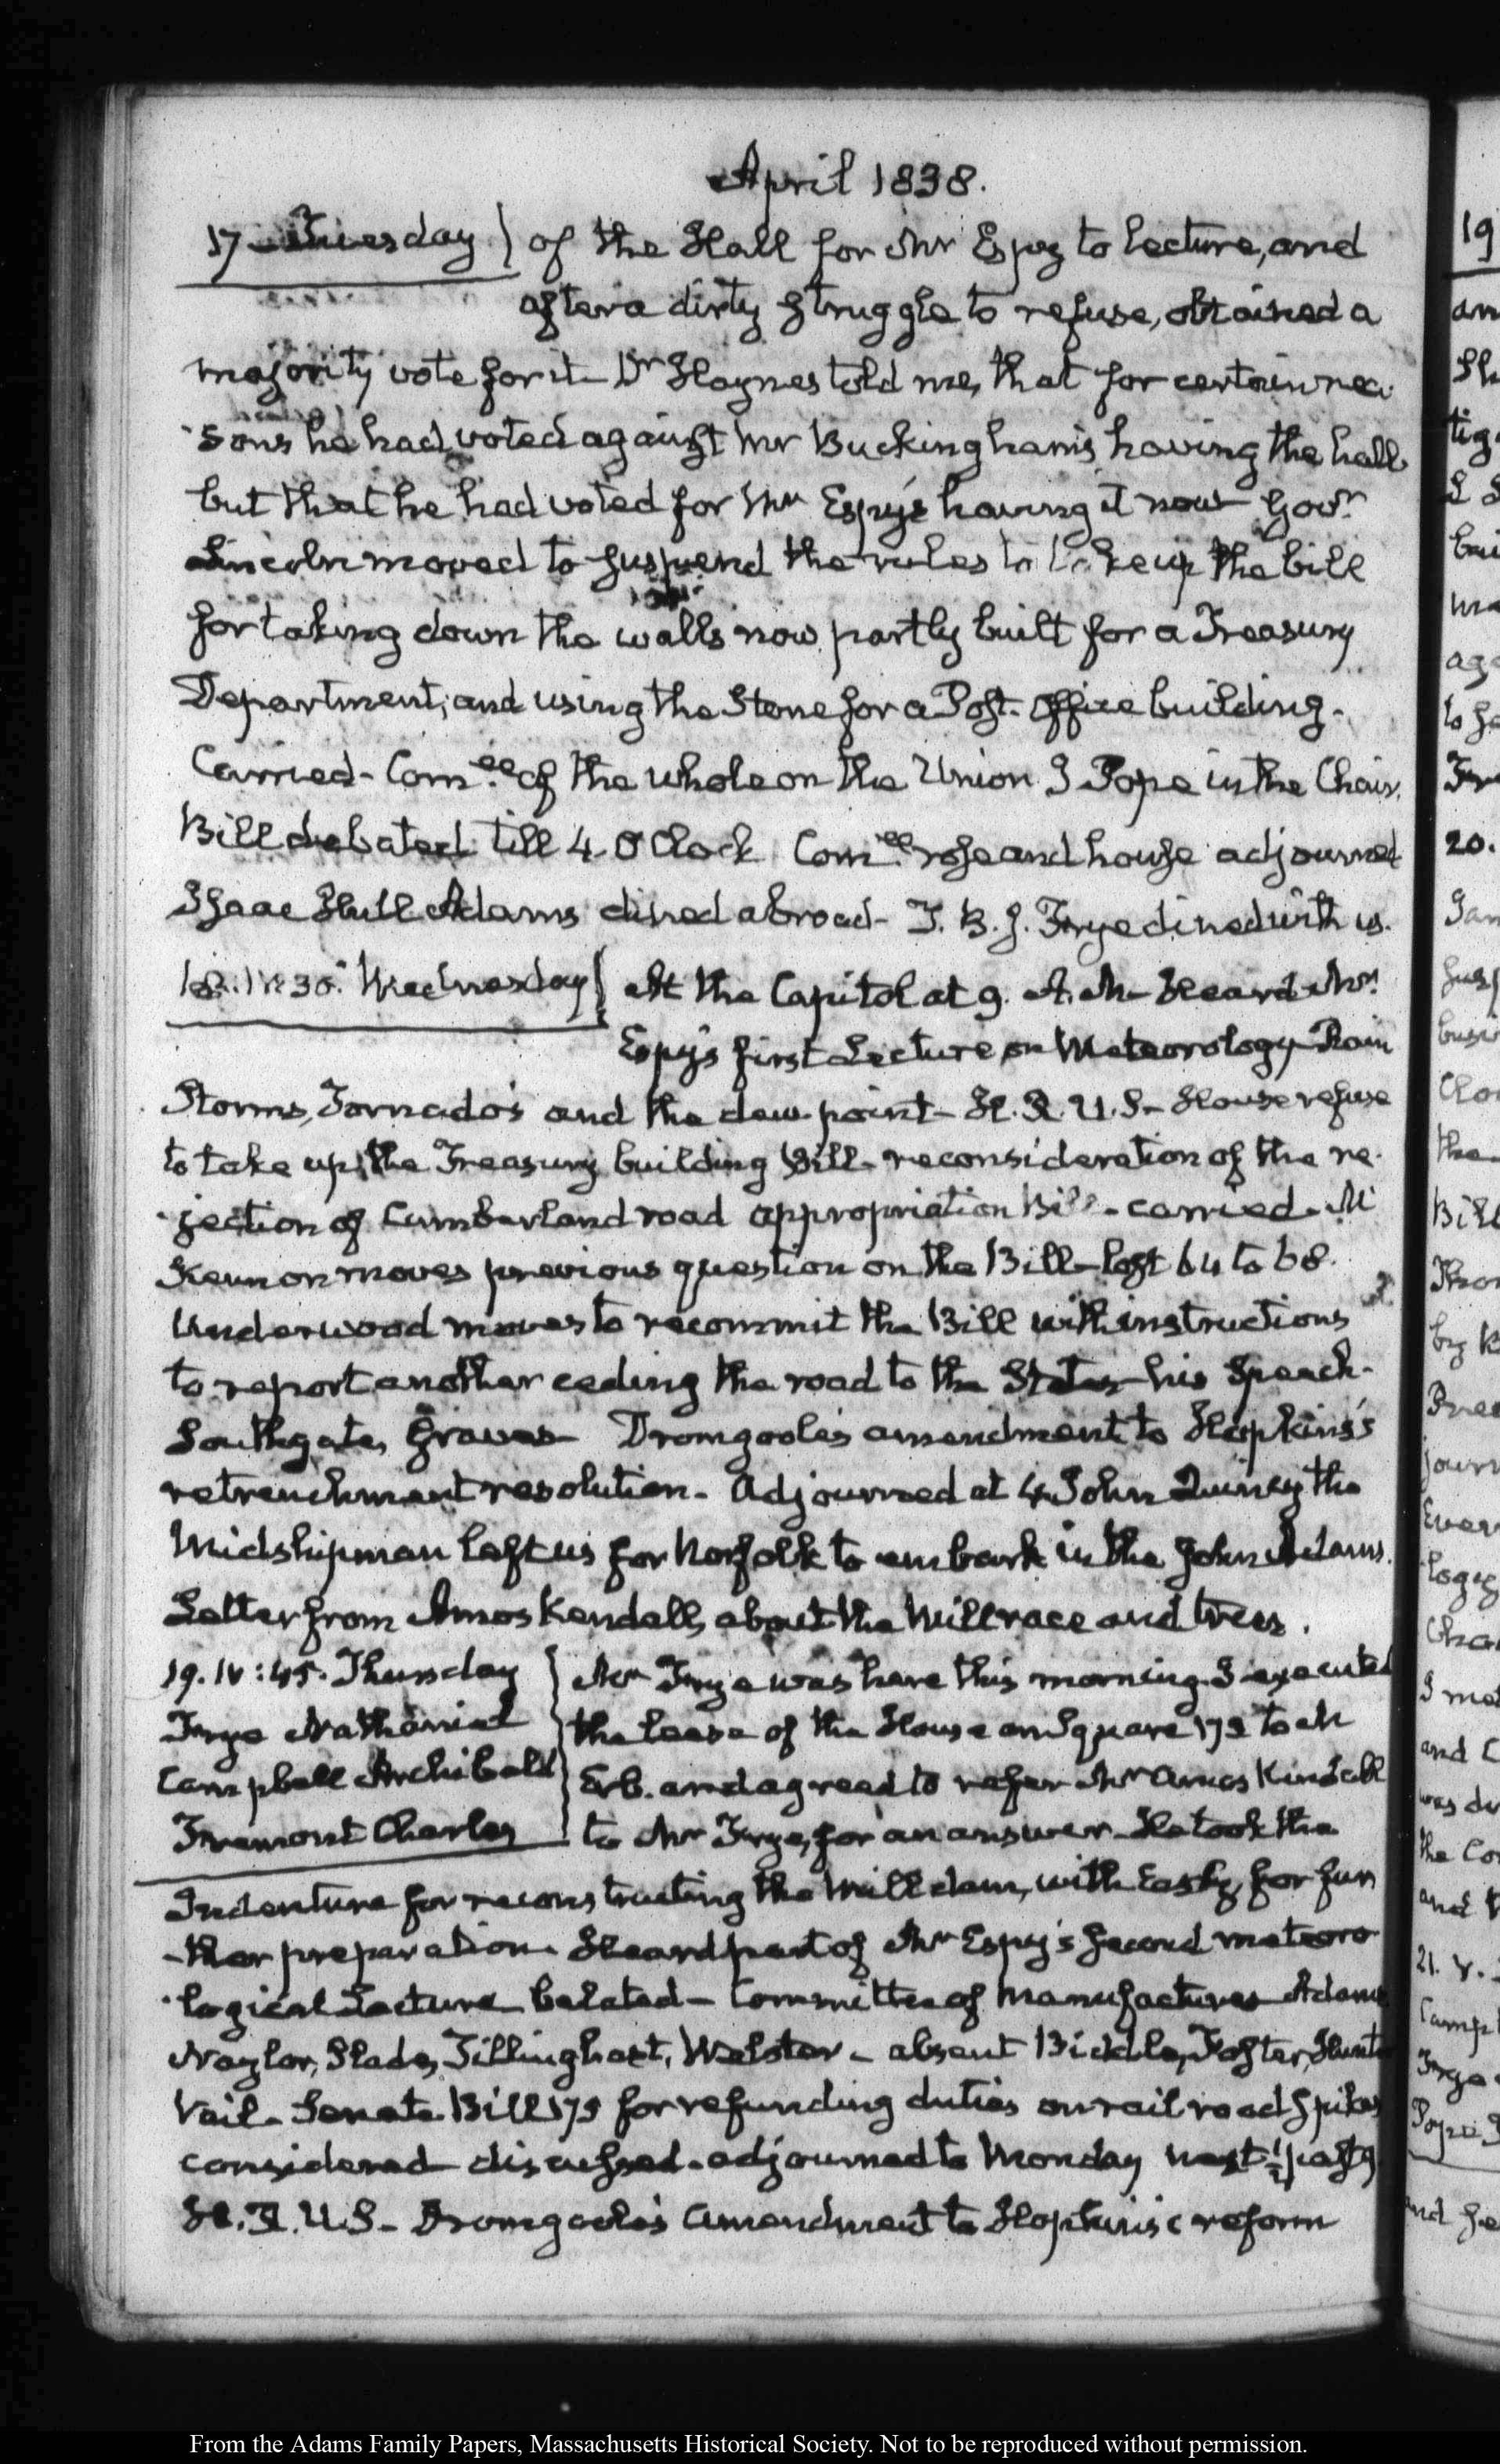 April 1838.
17 - Tuesday } of the Hall for Mr Espy to lecture, and
after a dirty struggle to refuse, obtained a
majority vote for it - Dr Haynes told me, that for certain rea-
-sons he had voted against Mr Buckingham's having the hall
but that he had voted for Mr Espy's having it now - Govr
Lincoln moved to suspend the rules to take up the bill
for taking down the walls now partly built for a Treasury
Department, and using the Stone for a Post-Office building.
Carried - Comee of the whole on the Union I Pope in the Chair.
Bill debated till 4. O'Clock Comee rose and house adjourned
Isaac Hull Adams dined abroad - T. B. J. Frye dined with us.
18. IV:30. Wednesday } At the Capitol at 9. A.M - Heard Mr
Espy's first Lecture on Meteorology - Rain
Storms, Tornado's and the dew-point - H. R. U. S. - House refuse
to take up the Treasury building Bill - reconsideration of the re-
-jection of Cumberland road appropriation Bill - carried. M'
Kennon moves previous question on the Bill - lost 64 to 68.
Underwood moves to recommit the Bill with instructions
to report another ceding the road to the States - his Speech -
Southgate, Graves - Dromgoole's amendment to Hopkins's
retrenchment resolution - Adjourned at 4. John Quincy the
Midshipman left us for Norfolk to embark in the John Adams.
Letter from Amos Kendall, about the Millrace and trees.
19. IV:45. Thursday } Mr Frye was here this morning. I executed
Frye Nathaniel } the lease of the House on Square 172 to
Campbell Archibald } Erb. and agreed to refer Mr Amos Kendall
Fremont Charles } to Mr Frye, for an answer - He took the
Indenture for reconstructing the Mill dam, with Easby, for fur
-ther preparation. Heard part of Mr Espy's second meteoro
-logical Lecture belated - Committee of Manufactures Adams
Naylor, Slade, Tillinghast, Webster - absent Biddle, Foster, Hunter
Vail - Senate Bill 175 for refunding duties on rail road Spikes
considered discussed - adjourned to Monday next ½ past 9
H. R. U. S - Dromgoole's amendment to Hopkins's reform
From the Adams Family Papers, Massachusetts Historical Society. Not to be reproduced without permission.